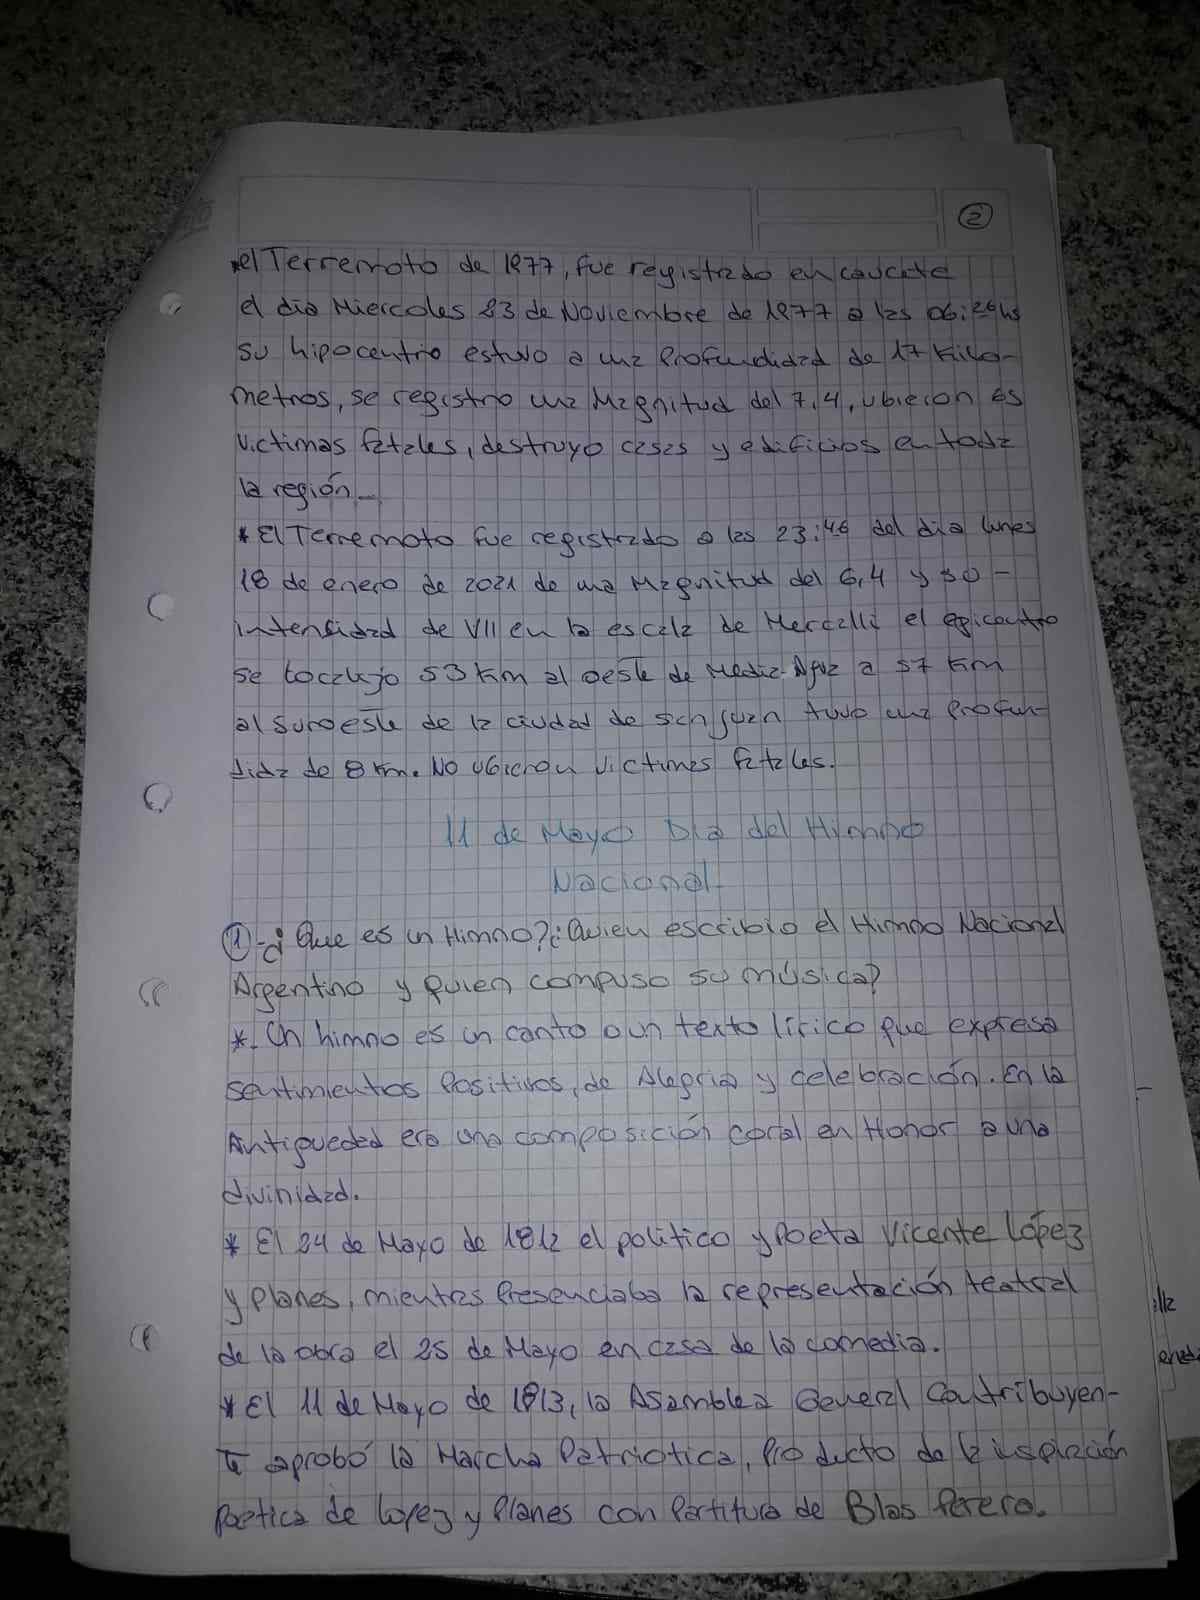 2
*el Terremoto de 1977, fue registrado en caucete
el dia Miercoles 23 de Noviembre de 1977 a las 06:26hs
su hipocentrio estuvo a una Profundidad de 17 Kilo-
metros, se registrio una Magnitud del 7,4, ubieron 65
victimas fatales, destruyo casas y edificios en toda
la región_
* El Terremoto fue registrado a las 23:46 del dia lunes
18 de enero de 2021 de una Magnitud del 6,4 y so -
intensidad de VII en la escala de Mercalli el epicentro
se localizo 53 Km al oeste de Media-Agua a 57 Km
al Suroeste de la ciudad de san juan tuvo una Profun-
dida de 8 Km. No ubieron victimas fatales.
11 de Mayo Dia del Himno
Nacional
1-¿Que es un Himno?¿Quien escribio el Himno Nacional
Argentino y quien compuso su música?
*. Un himno es un canto o un texto lírico que expresa
sentimientos Positivos, de Alegria y celebración. En la
Antigueded era una composición coral en Honor a una
divinidad.
* El 24 de Mayo de 1812 el politico y Poeta Vicente lópez
y Planes, mientras Presenciaba la representación teatral
de la obra el 25 de Mayo en casa de la comedia.
* El 11 de Mayo de 1813, la Asamblea General Contribuyen-
te aprobó la Marcha Patriotica, Producto de la inspiración
Poetica de lopez y Planes con Partitura de Blas Perero.